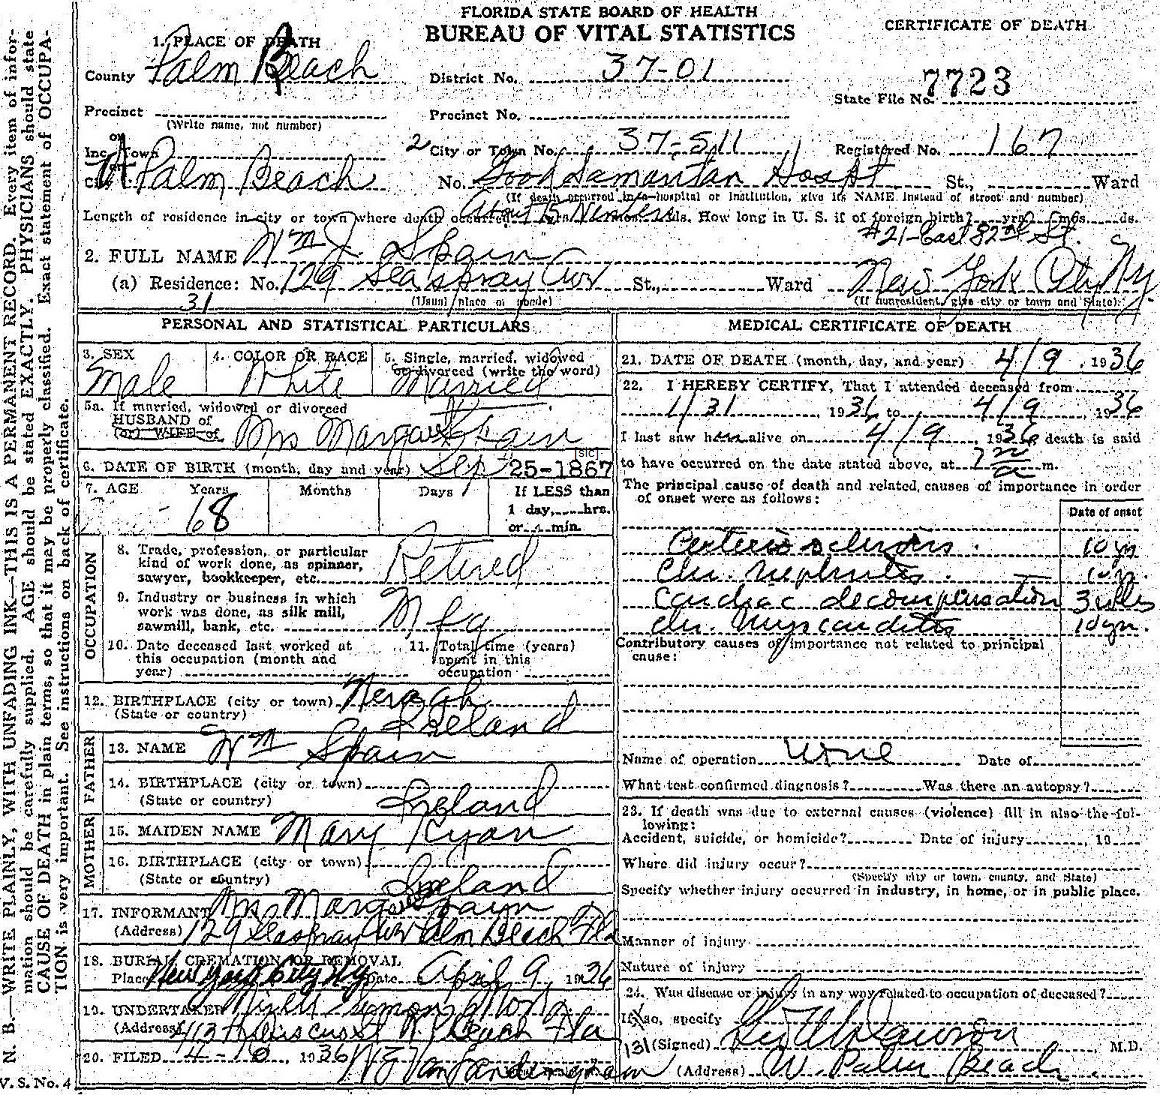 FLORIDA STATE BOARD OF HEALTH
BUREAU OF VITAL STATISTICS
CERTIFICATE OF DEATH
1. PLACE OF DEATH
County Palm Beach
District No. 37-01
State File No. 7723
Precinct
(Write name, not number)
Precinct No.
or
Inc. Town
2 City or Town No. 37-511
Registered No. 167
or
City W Palm Beach
No. Good Samaritan Hospt St., Ward
(If death occurred in a hospital or institution, give its NAME instead of street and number)
Length of residence in city or town where death occurred 15 Winters ds. How long in U. S. if of foreign birth? yrs. mos. ds.
#21-East 82nd St.
2. FULL NAME Wm J. Spain
(a) Residence: No. 129 Seaspray Av St., Ward New York City Ny
(Usual place of abode)
(If nonresident, give city or town and State)
31
PERSONAL AND STATISTICAL PARTICULARS
3. SEX
Male
4. COLOR OR RACE
White
5. Single, married, widowed
or divorced (write the word)
Married
5a. If married, widowed or divorced
HUSBAND of
(or) WIFE of
Mrs Margaret Spain
6. DATE OF BIRTH (month, day and year) Sep 25-1867 [SIC]
7. AGE Years Months Days If LESS than
1 day, hrs.
or min.
68
OCCUPATION
8. Trade, profession, or particular
kind of work done, as spinner,
sawyer, bookkeeper, etc. Retired
9. Industry or business in which
work was done, as silk mill,
sawmill, bank, etc. Mfg
10. Date deceased last worked at
this occupation (month and
year)
11. Total time (years)
spent in this
occupation
12. BIRTHPLACE (city or town) Nenagh
(State or country) Ireland
FATHER
13. NAME Wm Spain
14. BIRTHPLACE (city or town)
(State or country) Ireland
MOTHER
15. MAIDEN NAME Mary Ryan
16. BIRTHPLACE (city or town)
(State or country) Ireland
17. INFORMANT Mrs Margaret Spain
(Address) 129 Seaspray Av Palm Beach Fla
18. BURIAL CREMATION OR REMOVAL
Place New York City Ny Date April 9, 1936
19. UNDERTAKER
(Address) 413 Hibiscus St W P Beach Fla
20. FILED 4-10 1936
MEDICAL CERTIFICATE OF DEATH
21. DATE OF DEATH (month, day, and year) 4/9, 1936
22. I HEREBY CERTIFY, That I attended deceased from
1/31, 1936 to 4/9, 1936
I last saw him alive on 4/9, 1936 death is said
to have occurred on the date stated above, at a m.
The principal cause of death and related causes of importance in order
of onset were as follows:
Date of onset
Arteriosclerosis. 10 yr
Chr. Nephritis. 10 yr.
Cardiac decompensation 3 wks
Chr. Myocarditis 10 yr.
Contributory causes of importance not related to principal
cause:
Name of operation none Date of
What test confirmed diagnosis? Was there an autopsy?
23. If death was due to external causes (violence) fill in also the fol-
lowing:
Accident, suicide, or homicide? Date of injury, 19
Where did injury occur?
(Specify city or town, county, and State)
Specify whether injury occurred in industry, in home, or in public place.
Manner of injury
Nature of injury
24. Was disease or injury in any way related to occupation of deceased?
If so, specify
131 (Signed) M.D.
(Address) W. Palm Beach
N. B.—WRITE PLAINLY, WITH UNFADING INK—THIS IS A PERMANENT RECORD. Every item of infor-
mation should be carefully supplied. AGE should be stated EXACTLY. PHYSICIANS should state
CAUSE OF DEATH in plain terms, so that it may be properly classified. Exact statement of OCCUPA-
TION is very important. See instructions on back of certificate.
V. S. No. 4